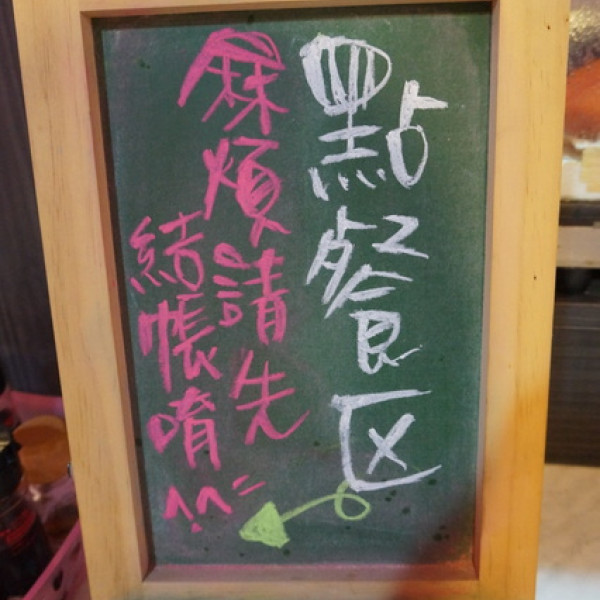 點餐区
麻煩請先
結帳唷^.^=